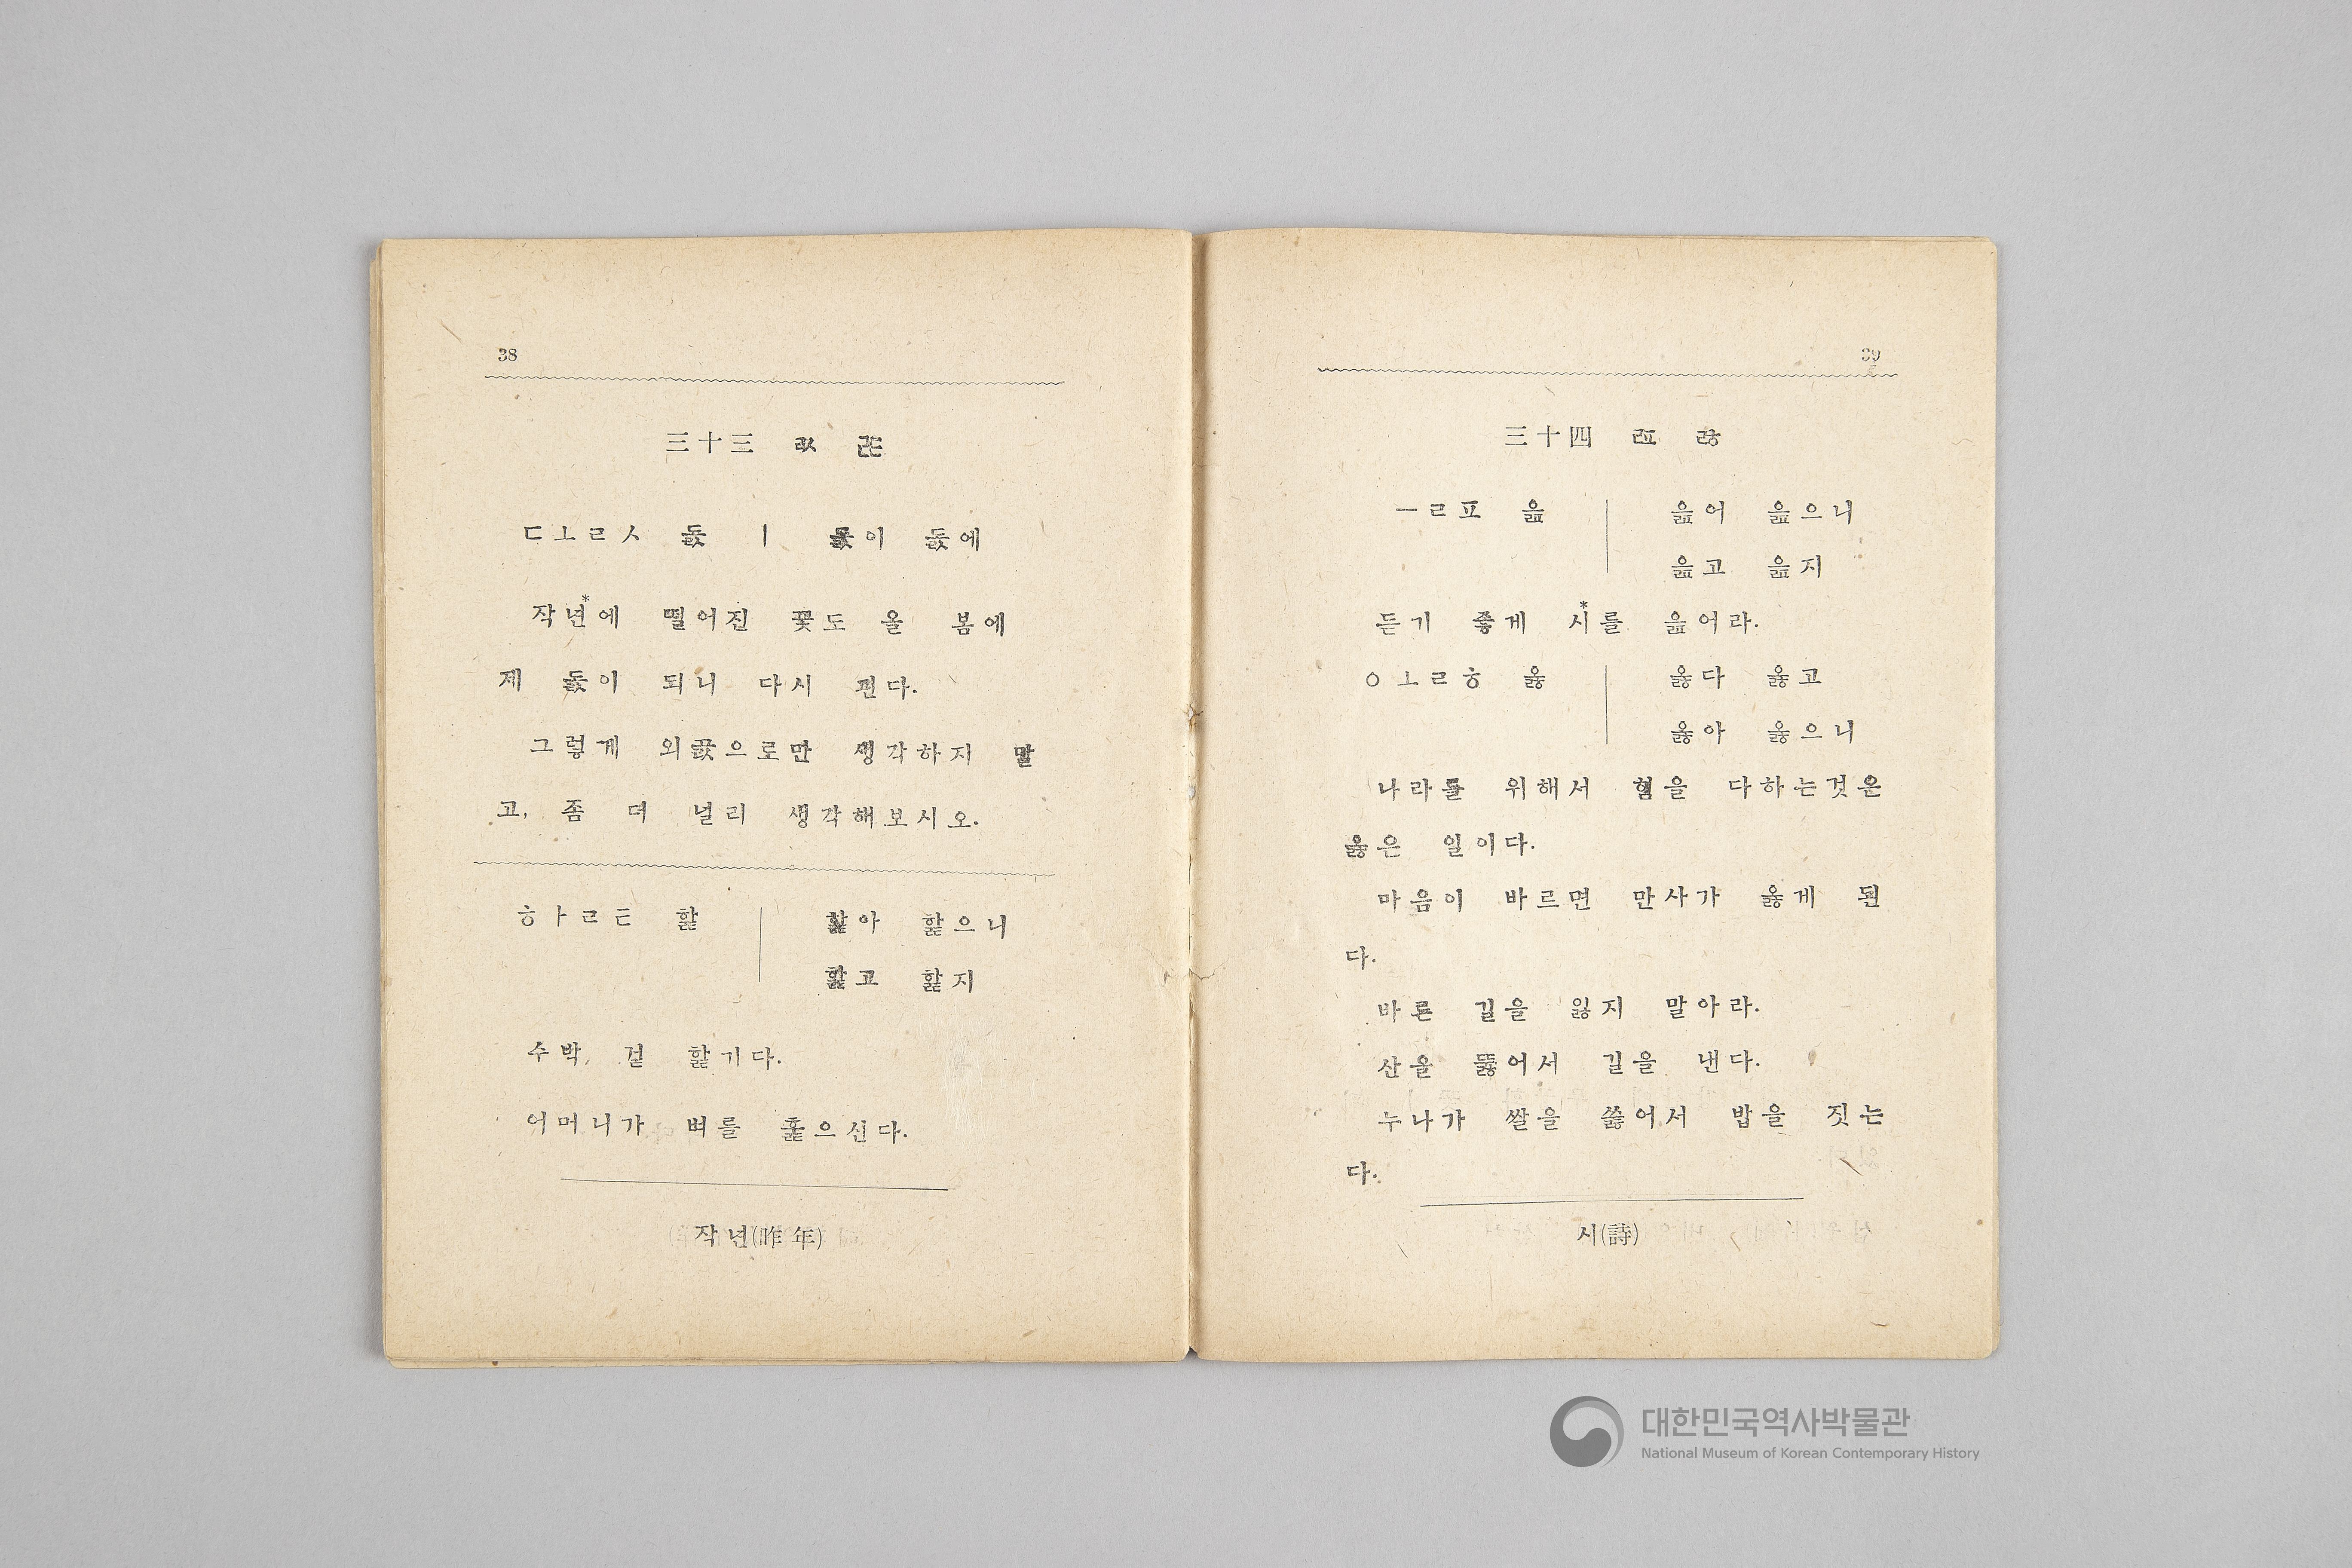 38
三十三 ㄽ ㄾ
ㄷㅗㄹㅅ 돐 ㅣ 돐이 돐에
작년*에 떨어진 꽃도 올 봄에
제 돐이 되니 다시 핀다.
그렇게 외곬으로만 생각하지 말
고, 좀 더 널리 생각해보시오.
ㅎㅏㄹㅌ 핥 핥아 핥으니
핥고 핥지
수박 겉 핥기다.
어머니가 벼를 훑으신다.
작년(昨年)
39
三十四 ㄿ ㅀ
ㅡㄹㅍ 읊 읊어 읊으니
읊고 읊지
듣기 좋게 시*를 읊어라.
ㅇㅗㄹㅎ 옳 옳다 옳고
옳아 옳으니
나라를 위해서 힘을 다하는것은
옳은 일이다.
마음이 바르면 만사가 옳게 된
다.
바른 길을 잃지 말아라.
산을 뚫어서 길을 낸다.
누나가 쌀을 쓿어서 밥을 짓는
다.
시(詩)
대한민국역사박물관
National Museum of Korean Contemporary History